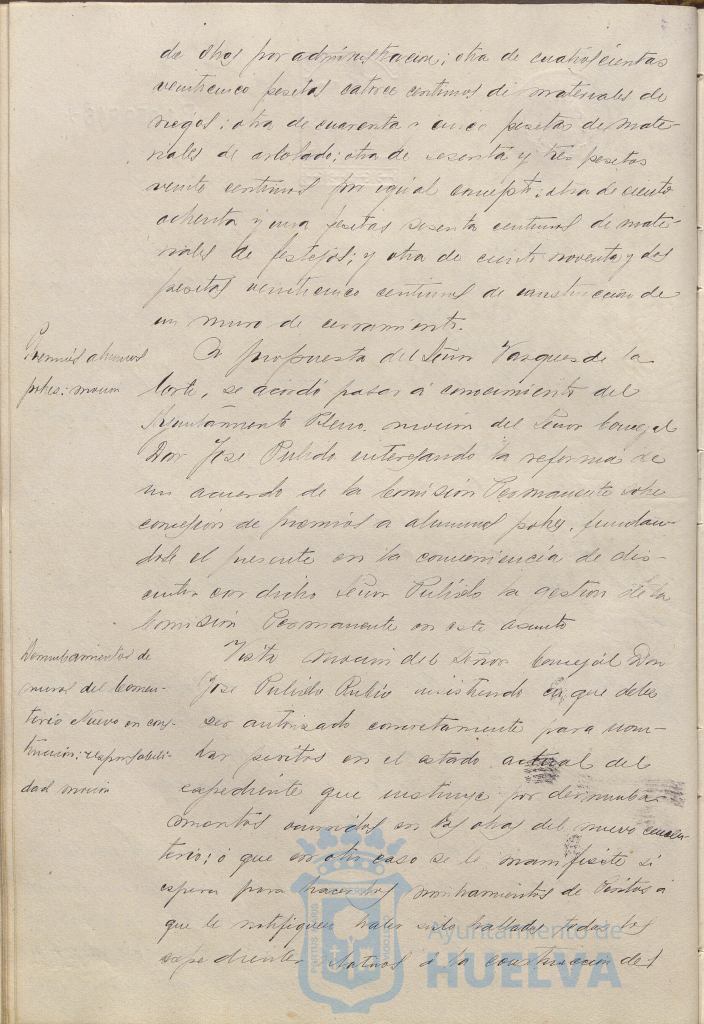 de obras por administracion; otra de cuatrocientas
veinticinco pesetas catorce centimos de materiales de
riegos; otra de cuarenta y cinco pesetas de mate-
riales de arbolado; otra de sesenta y tres pesetas
veinte centimos por igual concepto; otra de ciento
ochenta y una pesetas sesenta centimos de mate-
riales de festejos; y otra de ciento noventa y dos
pesetas veinticinco centimos de construccion de
un muro de cerramiento.
Premios alumnos
pobres: mocion
A propuesta del Señor Vazquez de la
Corte, se acordó pasar á conocimiento del
Ayuntamiento Pleno, mocion del Señor Concejal
Don Jose Pulido interesando la reforma de
un acuerdo de la Comisión Permanente sobre
concesion de premios a alumnos pobres, fundan-
dose el presente en la conveniencia de dis-
cutir con dicho Señor Pulido la gestion de la
Comisión Permanente en este asunto
Derrumbamientos de
muros del Cemen-
terio Nuevo en cons-
truccion: responsabili-
dad mocion
Vista mocion del Señor Concejal Don
Jose Pulido Rubio insistiendo en que debe
ser autorizado concretamente para nom-
brar peritos en el estado actual del
expediente que instruye por derrumba-
mientos ocurridos en las obras del nuevo cemen-
terio; ó que en otro caso se le manifieste si
espera para hacer los nombramientos de Peritos á
que le notifiquen haber sido hallados todos los
expedientes relativos á la construccion del
Ayuntamiento de
HUELVA